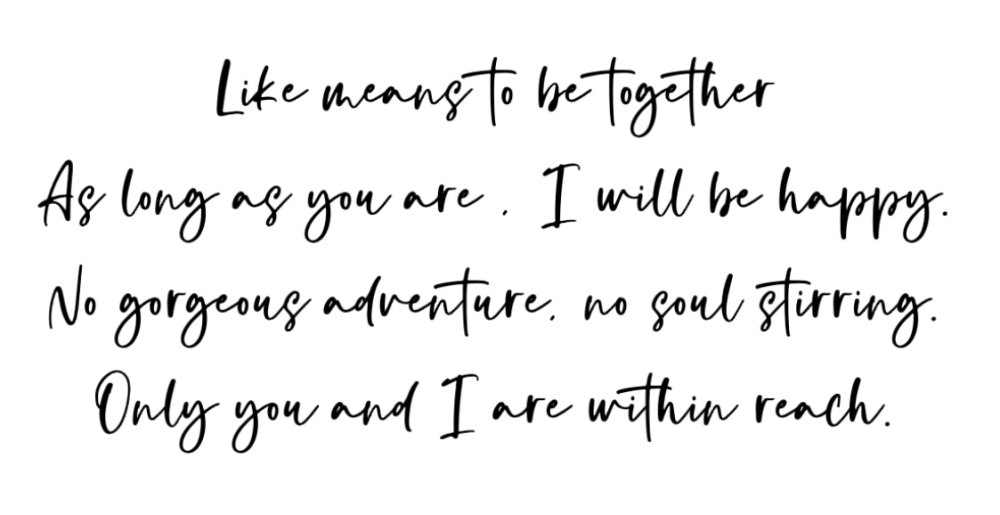 Like means to be together
As long as you are , I will be happy.
No gorgeous adventure, no soul stirring.
Only you and I are within reach.